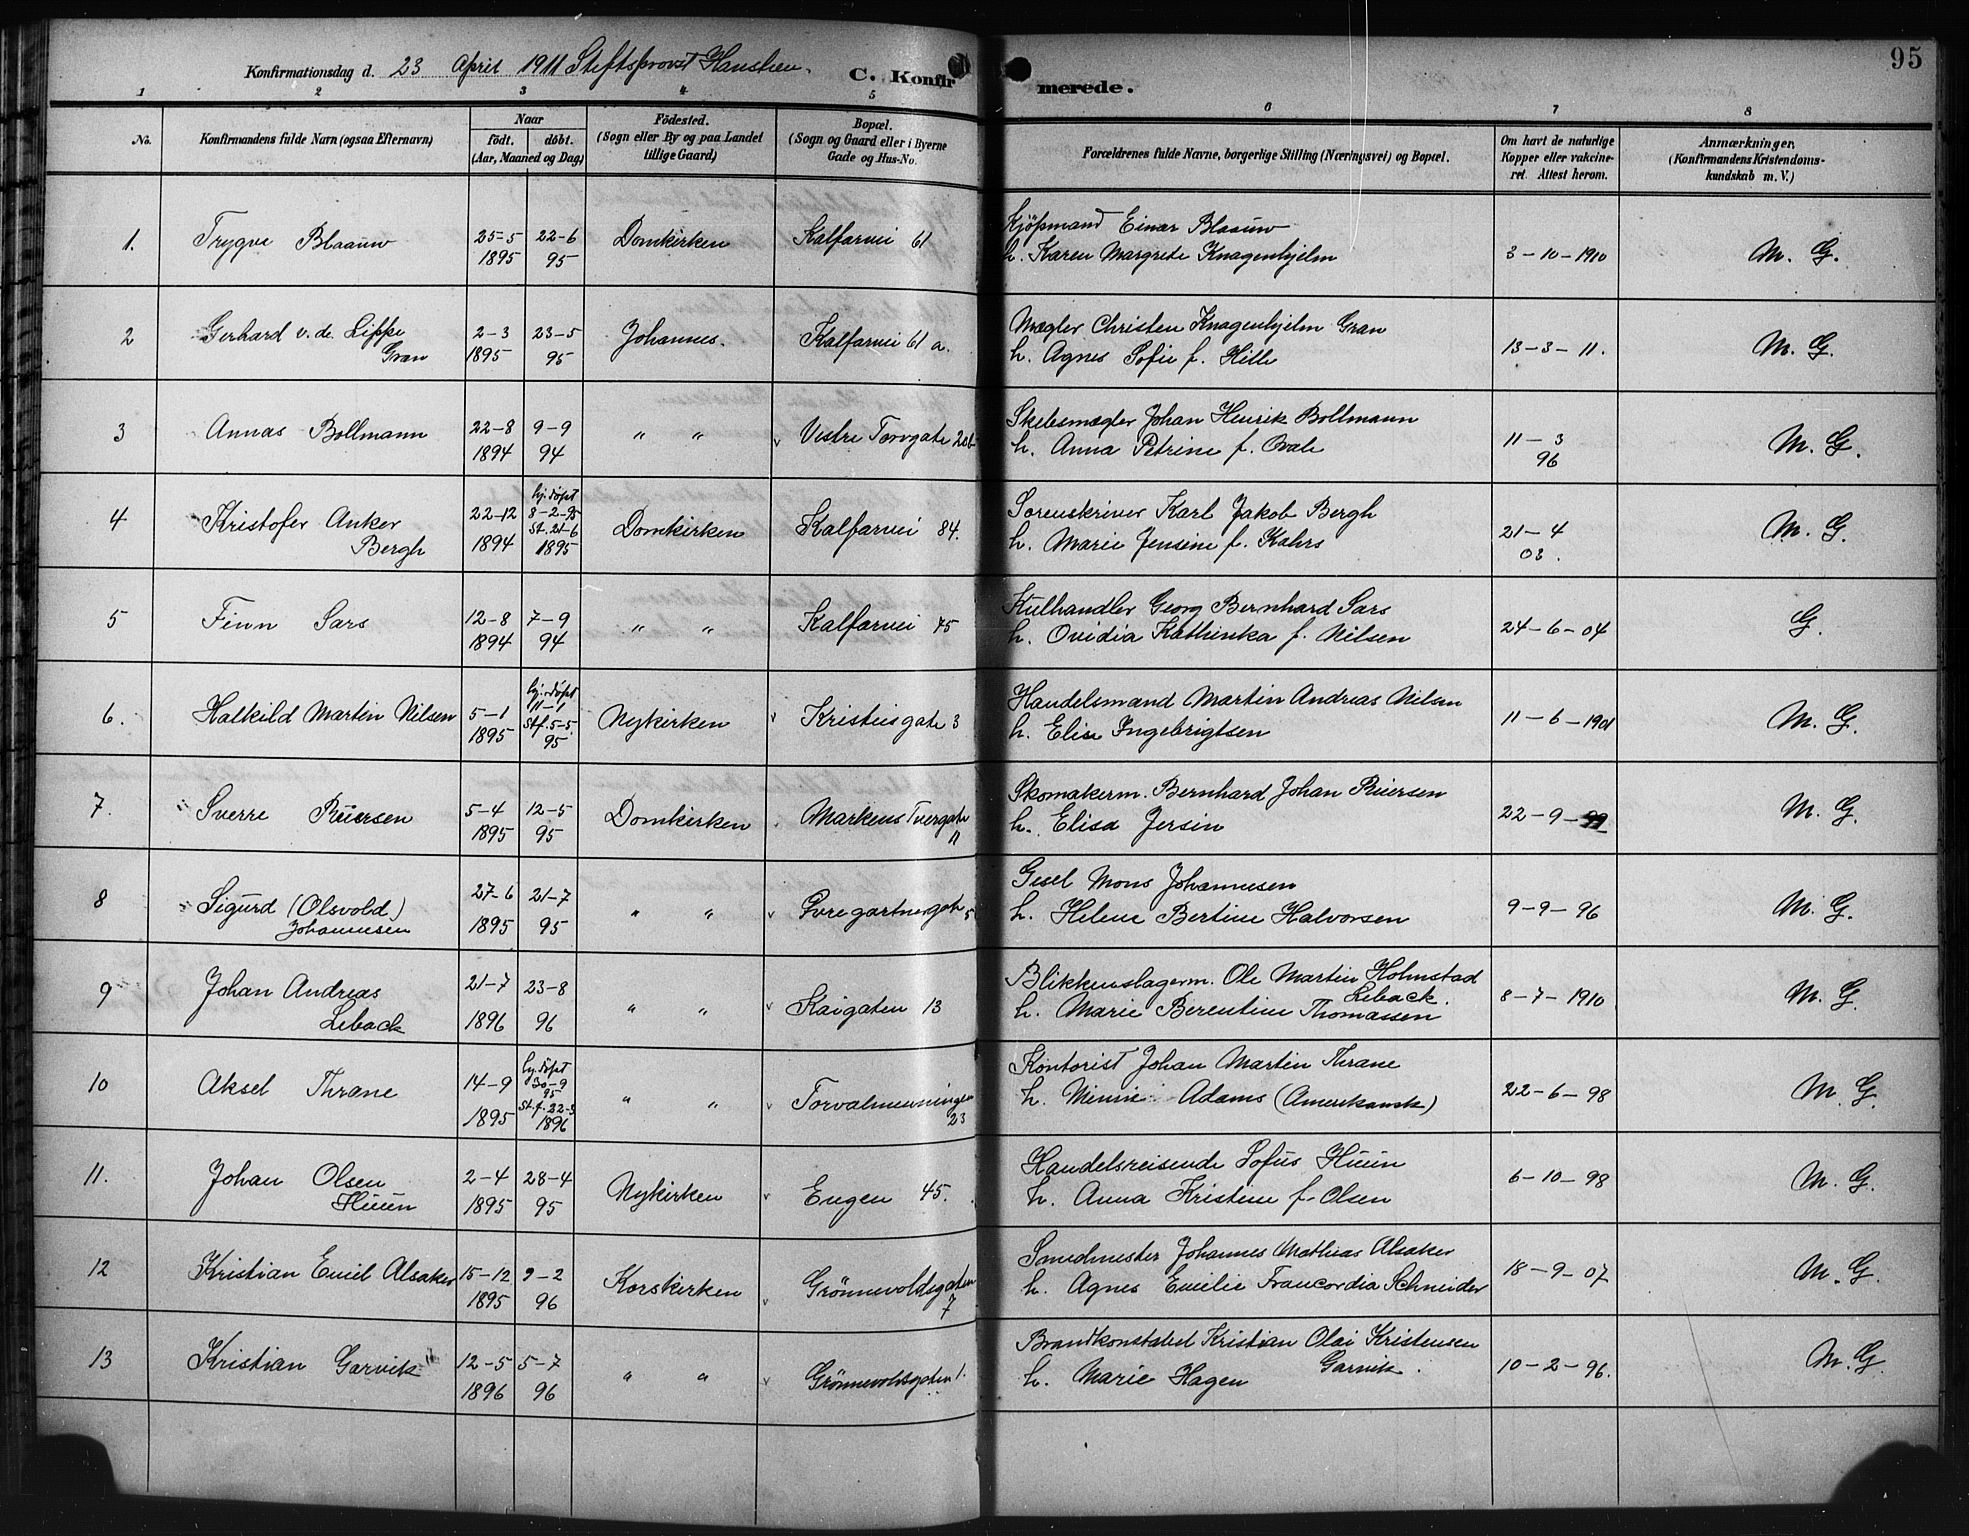 95
Konfirmationsdag d. 23 April 1911 Stiftsprovst Hanstien.
C. Konfirmerede.
1 2 3 4 5 6 7 8
No. Konfirmandens fulde Navn (ogsaa Efternavn) Naar födt. döbt. (Aar, Maaned og Dag) Födested. (Sogn eller By og paa Landet tillige Gaard) Bopæl. (Sogn og Gaard eller i Byerne Gade og Hus-No. Forældrenes fulde Navne, borgerlige Stilling (Næringsvei) og Bopæl. Om havt de naturlige Kopper eller vakcineret. Attest herom. Anmærkninger. (Konfirmandens Kristendomskundskab m. V.)
1. Trygve Blaauw 25-5 1895 22-6 95 Domkirken Kalfarvei 61 Kjöpmand Einar Blaauw h. Karen Margrete Knagenhjelm 3-10-1910 M. G.
2 Gerhard v. de. Lippe Gran 2-3 1895 23-5 95 Johannes. Kalfarvei 61 a. Mægler Christen Knagenhjelm Gran h. Agnes Sofie f. Hille 13-3-11. M. G.
3 Annas Bollmann 22-8 1894 9-9 94 " " v Vestre Torvgate Skibsmægler Johan Henrik Bollmann h. Anna Petrine f. Ovale 11-3 96 M. G.
4 Kristofer Anker Bergh 22-12 1894 hj. döpt 8-2-95 St. 21-6 1895 Domkirken Kalfarvei 84. Sorenskriver Karl Jakob Bergh h. Marie Jensine f. Kahrs 21-4 03. M. G.
5 Finn Sars 12-8 1894 7-9 94 " " Kalfarvei 75 Kulhandler Georg Bernhard Sars h. Ovidia Kathinka f. Nilsen 24-6-04 G.
6. Halkild Martin Nilsen 5-1 1895 hj. döpt 11-1 Stf. 5-5. 95 Nykirken v Kristiesgate 3 Handelsmand Martin Andreas Nilsen h. Elise Ingebrigtsen 11-6-1901 M. G.
7. Sverre Riiersen 5-4 1895 12-5 95 Domkirken Markens Tvergate 11 Skomakerm. Bernhard Johan Riiersen h. Elisa Jersin 22-9-99 M. G.
8 Sigurd (Olsvold) Johannesen 27-6 1895 21-7 95 " " v Övregartnergate 5 Gesel Mons Johannesen h. Helene Bertine Halvorsen 9-9-96 M. G.
9 Johan Andreas Leback 21-7 1896 23-8 96 " " v Kaigaten 13 Blikkenslagerm. Ole Martin Holmstad Leback. h. Marie Berentine Thomassen 8-7-1910 M. G.
10 Aksel Thrane 14-9 1895 hj. döpt 30-9 95 St. f. 22-3 1896 " " v Torvalmenningen 23 Kontorist Johan Martin Thrane h. Minnie Adams (Amerikansk) 22-6-98 M. G.
11. Johan Olsen Huun 2-4 1895 28-4 95 Nykirken v Engen 45. Handelsreisende Sofus Huun h. Anna Kristine f. Olsen 6-10-98 M. G.
12 Kristian Emil Alsaker 15-12 1895 9-2 96 Korskirken v Grönnevoldsgaten 7 Smedmester Johannes Mathias Alsaker h. Agnes Emilie Francordia Schneider 18-9-07 M. G.
13 Kristian Garvik 12-5 1896 5-7 96 " " v Grönnevoldsgaten 1. Brandkonstabel Kristian Olai Kristensen Garvik. h. Marie Hagen 10-2-96. M. G.